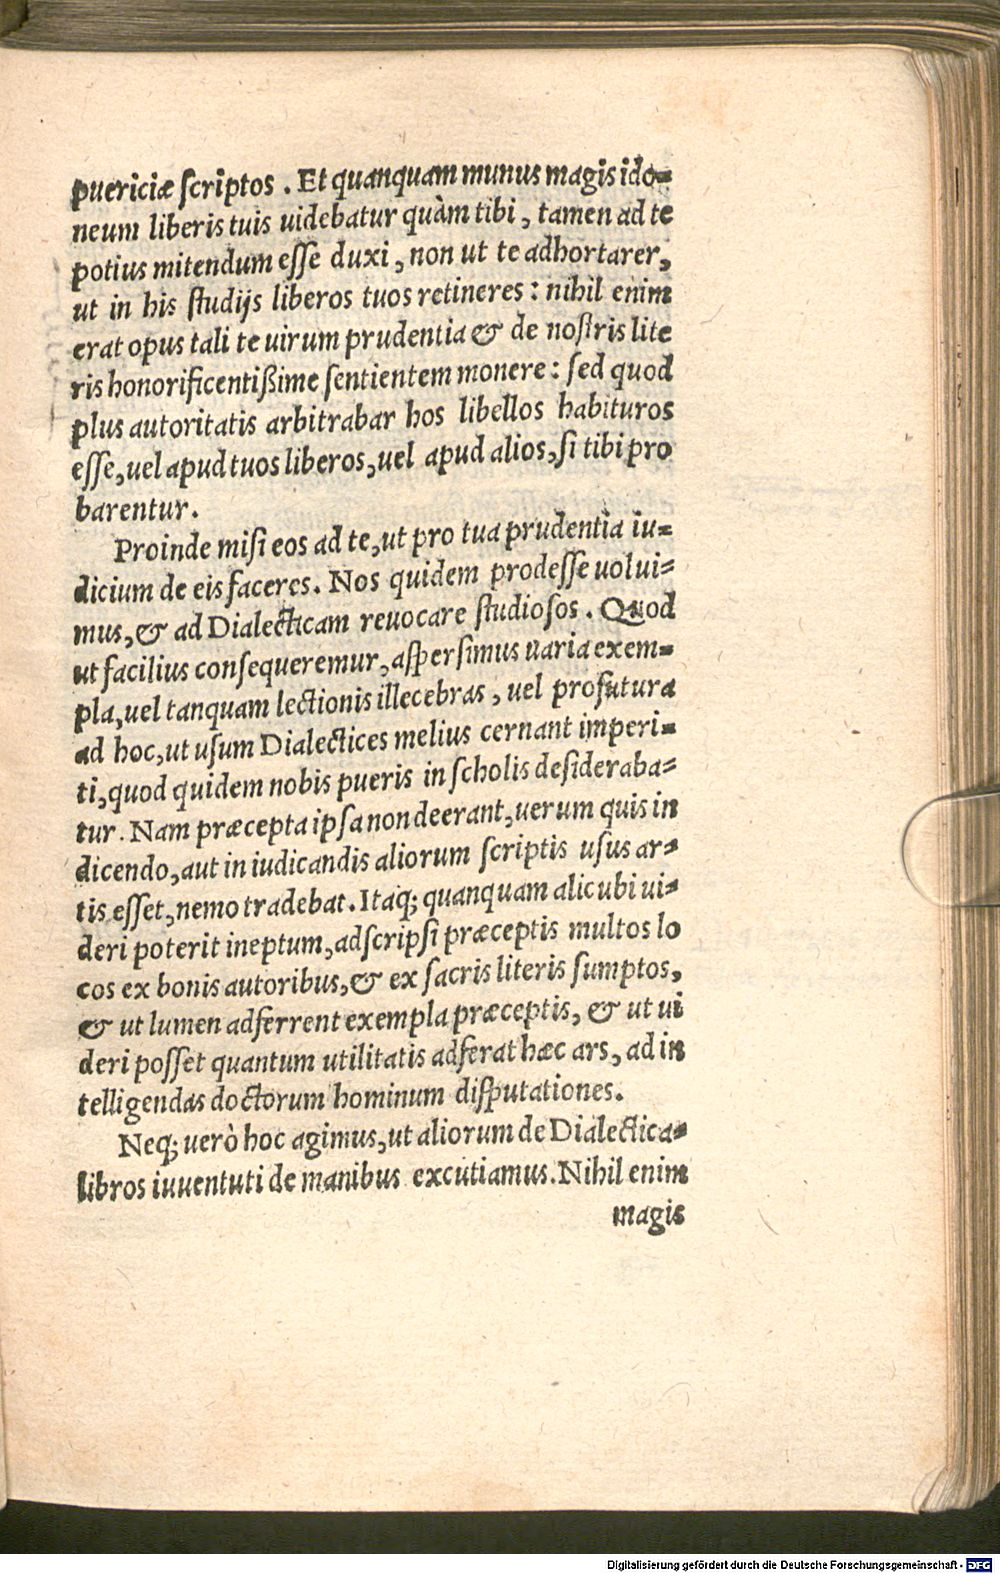 pueiciæ scriptos . Et quanquam munus magis ido=
neum liberis tuis uidebatur quàm tibi , tamen ad te
potius mitendum esse duxi , non ut te adhortarer,
ut in his studijs liberos tuos retineres : nihil enim
erat opus tali te uirum prudentia & de nostris lite
ris honorificentißime sentientem monere : sed quod
plus autoritatis arbitrabar hos libellos habituros
esse, uel apud tuos liberos, uel apud alios, si tibi pro
barentur.
Proinde misi eos ad te, ut pro tua prudentia iu=
dicium de eis faceres. Nos quidem prodesse uolui=
mus, & ad Dialecticam reuocare studiosos . Quod
ut facilius consequeremur, aspersimus uaria exem=
pla, uel tanquam lectionis illecebras , uel profutura
ad hoc, ut usum Dialectices melius cernant imperi=
ti, quod quidem nobis pueris in scholis desideraba=
tur. Nam præcepta ipsa non deerant, uerum quis in
dicendo, aut in iudicandis aliorum scriptis usus ar=
tis esset, nemo tradebat. Itaq; quanquam alicubi ui=
deri poterit ineptum, adscripsi præceptis multos lo
cos ex bonis autoribus, & ex sacris literis sumptos,
& ut lumen adferrent exempla præceptis, & ut ui
deri posset quantum utilitatis adferat hæc ars, ad in
telligendas doctorum hominum disputationes.
Neq; uerò hoc agimus, ut aliorum de Dialectica=
libros iuuentuti de manibus excutiamus. Nihil enim
magis
Digitalisierung gefördert durch die Deutsche Forschungsgemeinschaft - DFG